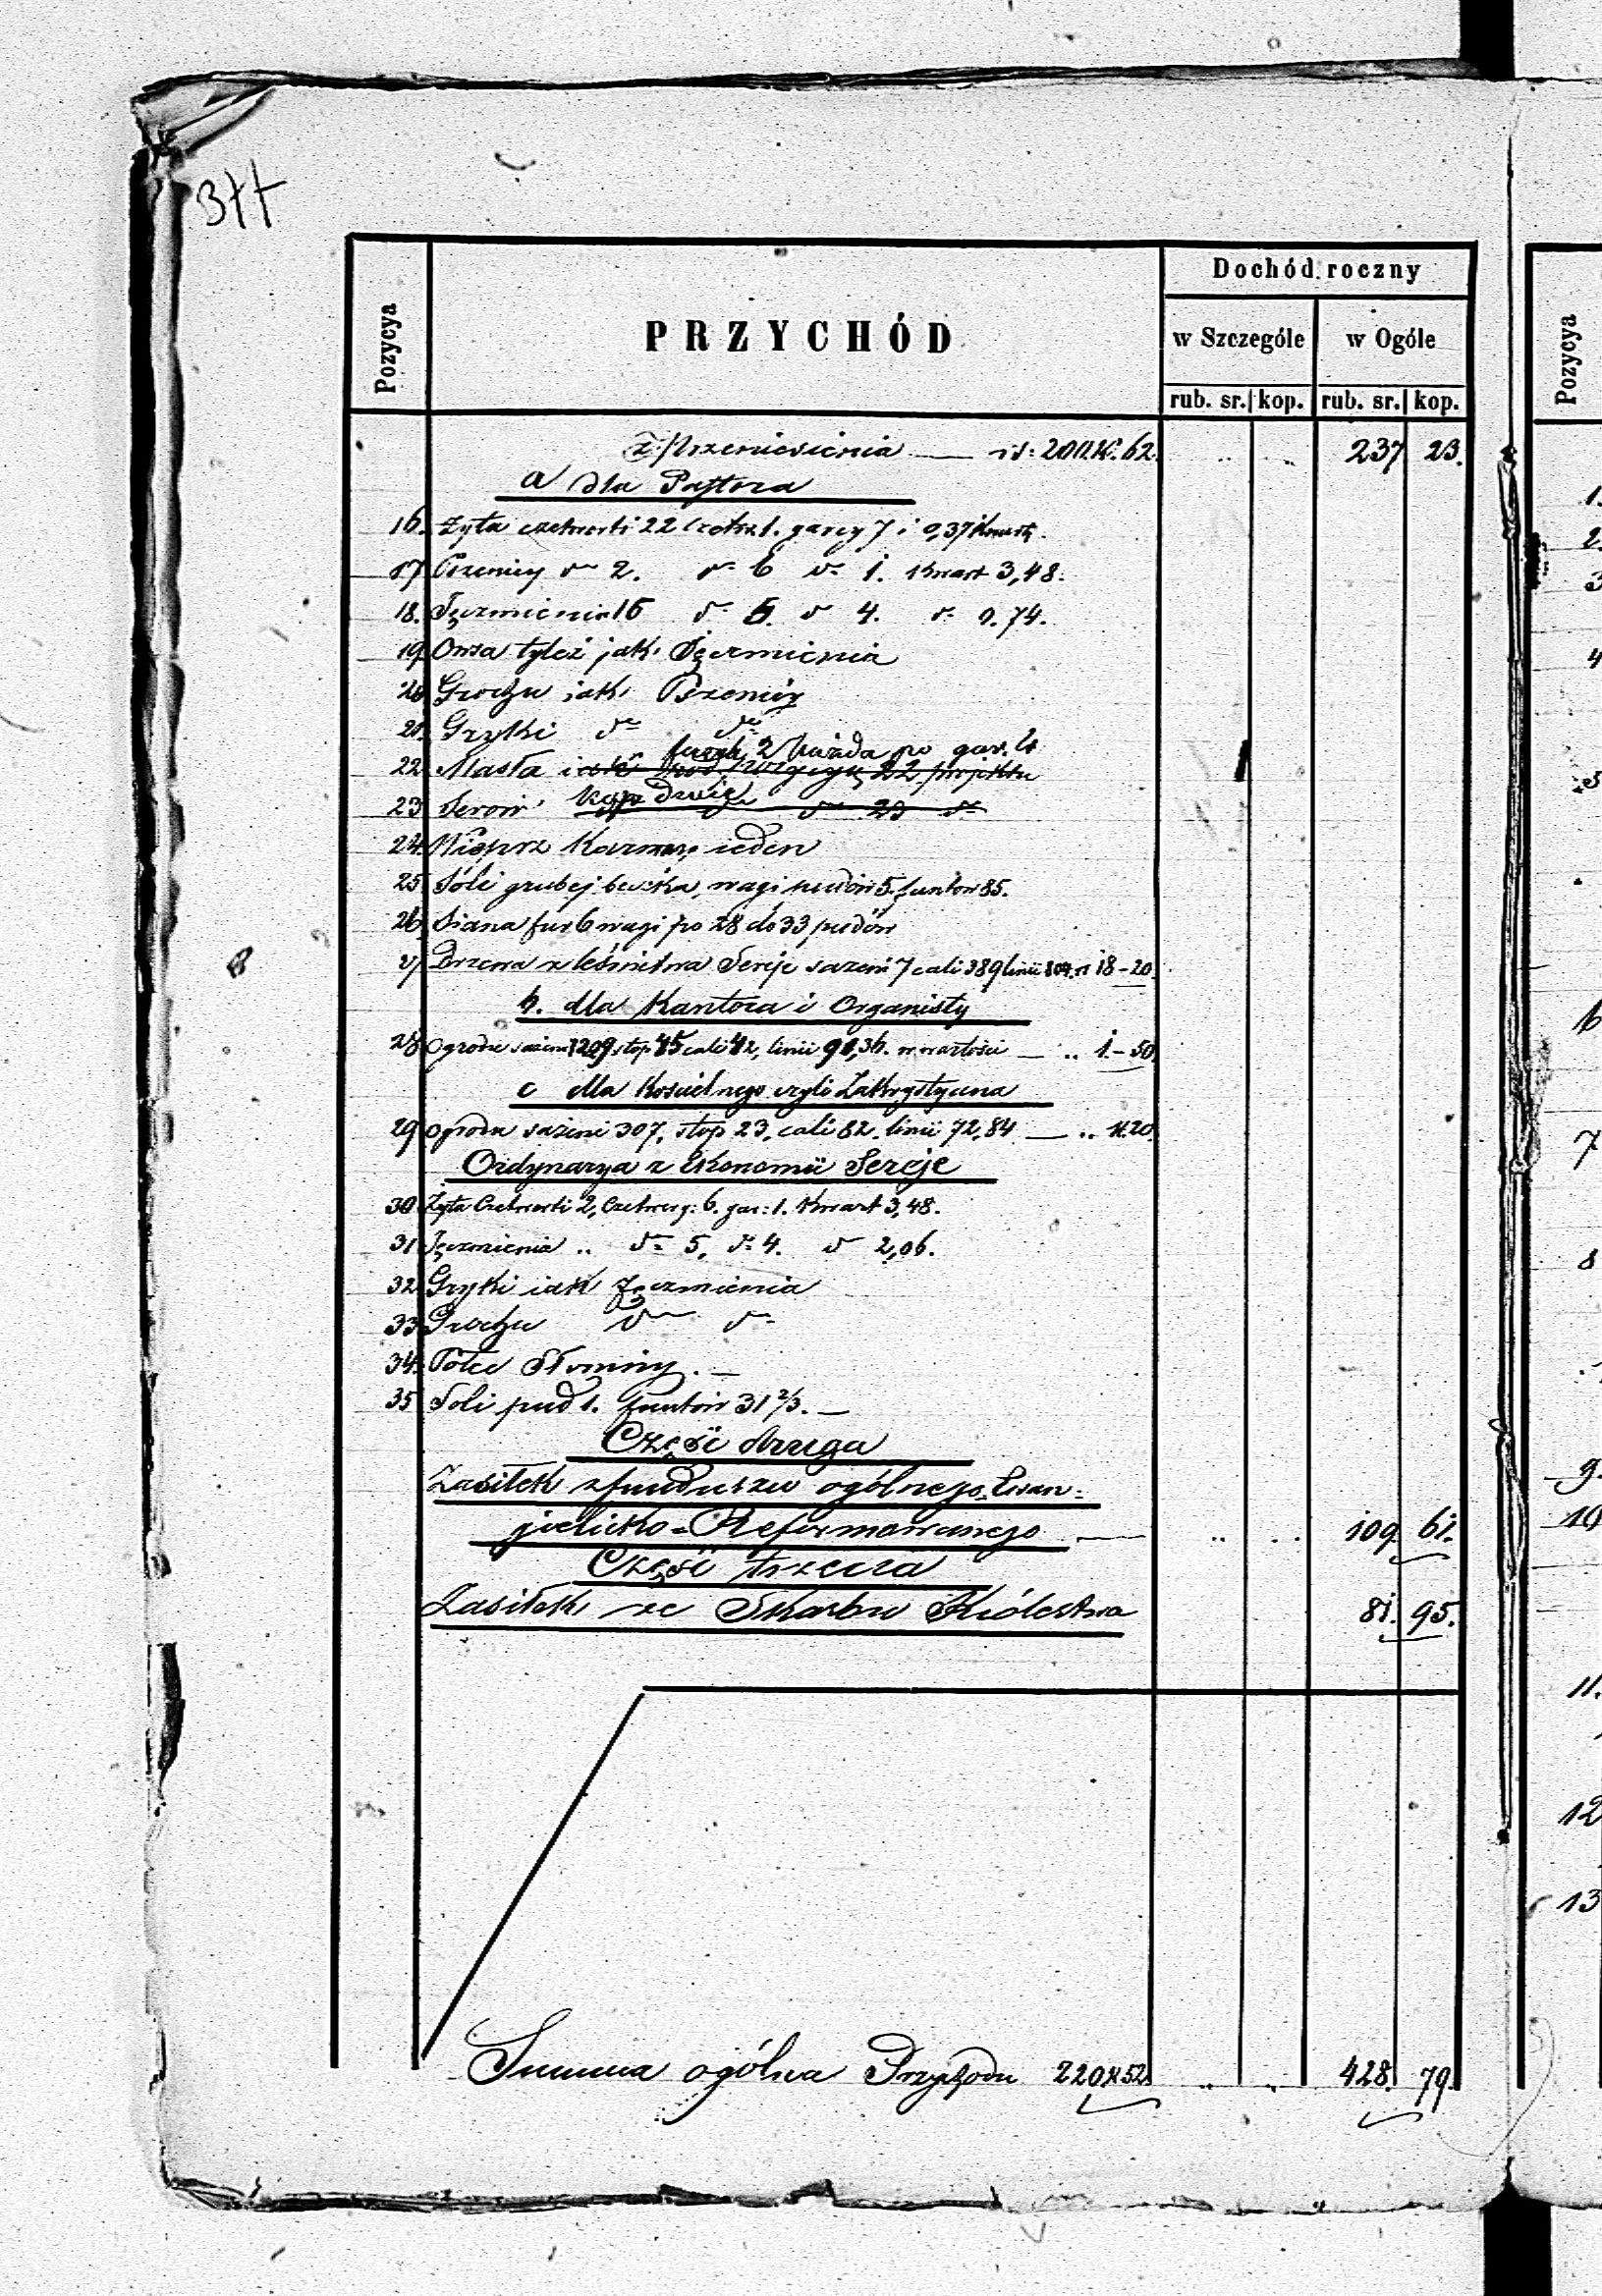 377
Dochód roczny
Pozycya
PRZYCHÓD
w Szczególe
w Ogóle
Pozycya
rub. sr. kop. rub. sr. kop.
z Przeniesienia — rs: 200.K. 62. .. .. 237 23.
a dla Pastora
16. Żyta czetwerti 22 czetw 1. garcy 7 i 0,37 Kwarty.
17 Pszenicy do 2. do 6 do 1. Kwart 3,48.
18. Jęczmienia 15 do 5. do 4. do 0.74.
19 Owsa tyleż jak Jęczmienia
20 Grochu jak Pszenicy
21. Gryki do do
22 Masła jak 2 po gar. 4
22 projektu
23 Serów kop dwie do 23 do
24. Wieprz Karmny jeden
25 Sóli grubej beczka, wagi pudów 5, funtów 35.
26 Siana fur 6 wagi po 28 do 33 pudów
27 Drzewa z leśnictwa Sereje sazeni 7 cali 389 linii 804. rs 18-20.
b. dla Kantora i Organisty
28 Ogrodu sażeni 1209 stop 45 cali 42, linii 91,36. w wartości — .. 1.-50.
c dla Kościelnego czyli Zakrystyana
29 Ogrodu sażeni 307, stop 23, cali 82. linii 72,84 — .. 1.20.
Ordynarya z Ekonomii Sereje
30 Żyta Czetwerti 2, Czetwery: 6. gar: 1. Kwart 3,48.
31 Jęczmienia .. do 5, do 4. do 2,06.
32 Gryki jak Jęczmienia
33 Grochu do do
34. Połcie Słoniny. —
35 Soli pud 1. funtów 31 2/3. —
Część druga
Zasiłek z funduszu ogólnego Ewan=
jelicko=Reformowanego — .. .. 109. 61.
Część trzecia
Zasiłek ze Skarbu Królestwa 81. 95.
Summa ogólna Przychodu 220 K 52. .. .. 428. 79.
1.
2.
3
4
5
6
7
8
9.
10
11.
12
13